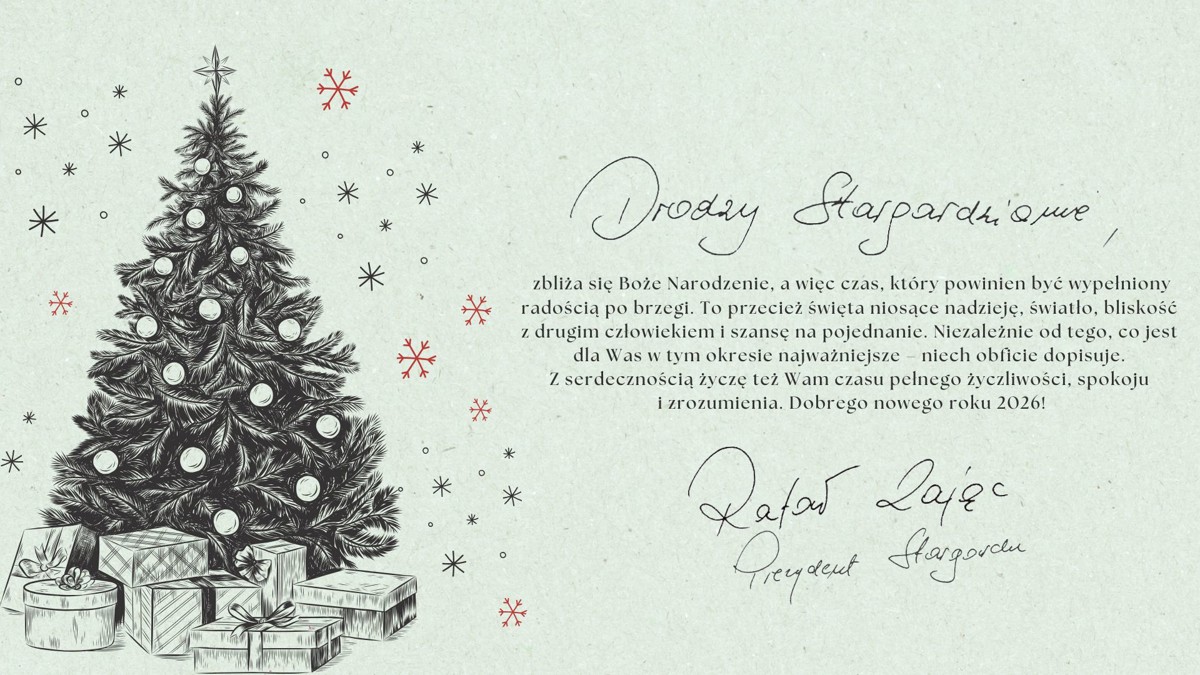 Drodzy Stargardzianie,
zbliża się Boże Narodzenie, a więc czas, który powinien być wypełniony
radością po brzegi. To przecież święta niosące nadzieję, światło, bliskość
z drugim człowiekiem i szansę na pojednanie. Niezależnie od tego, co jest
dla Was w tym okresie najważniejsze – niech obficie dopisuje.
Z serdecznością życzę też Wam czasu pełnego życzliwości, spokoju
i zrozumienia. Dobrego nowego roku 2026!
Rafał Zając
Prezydent Stargardu